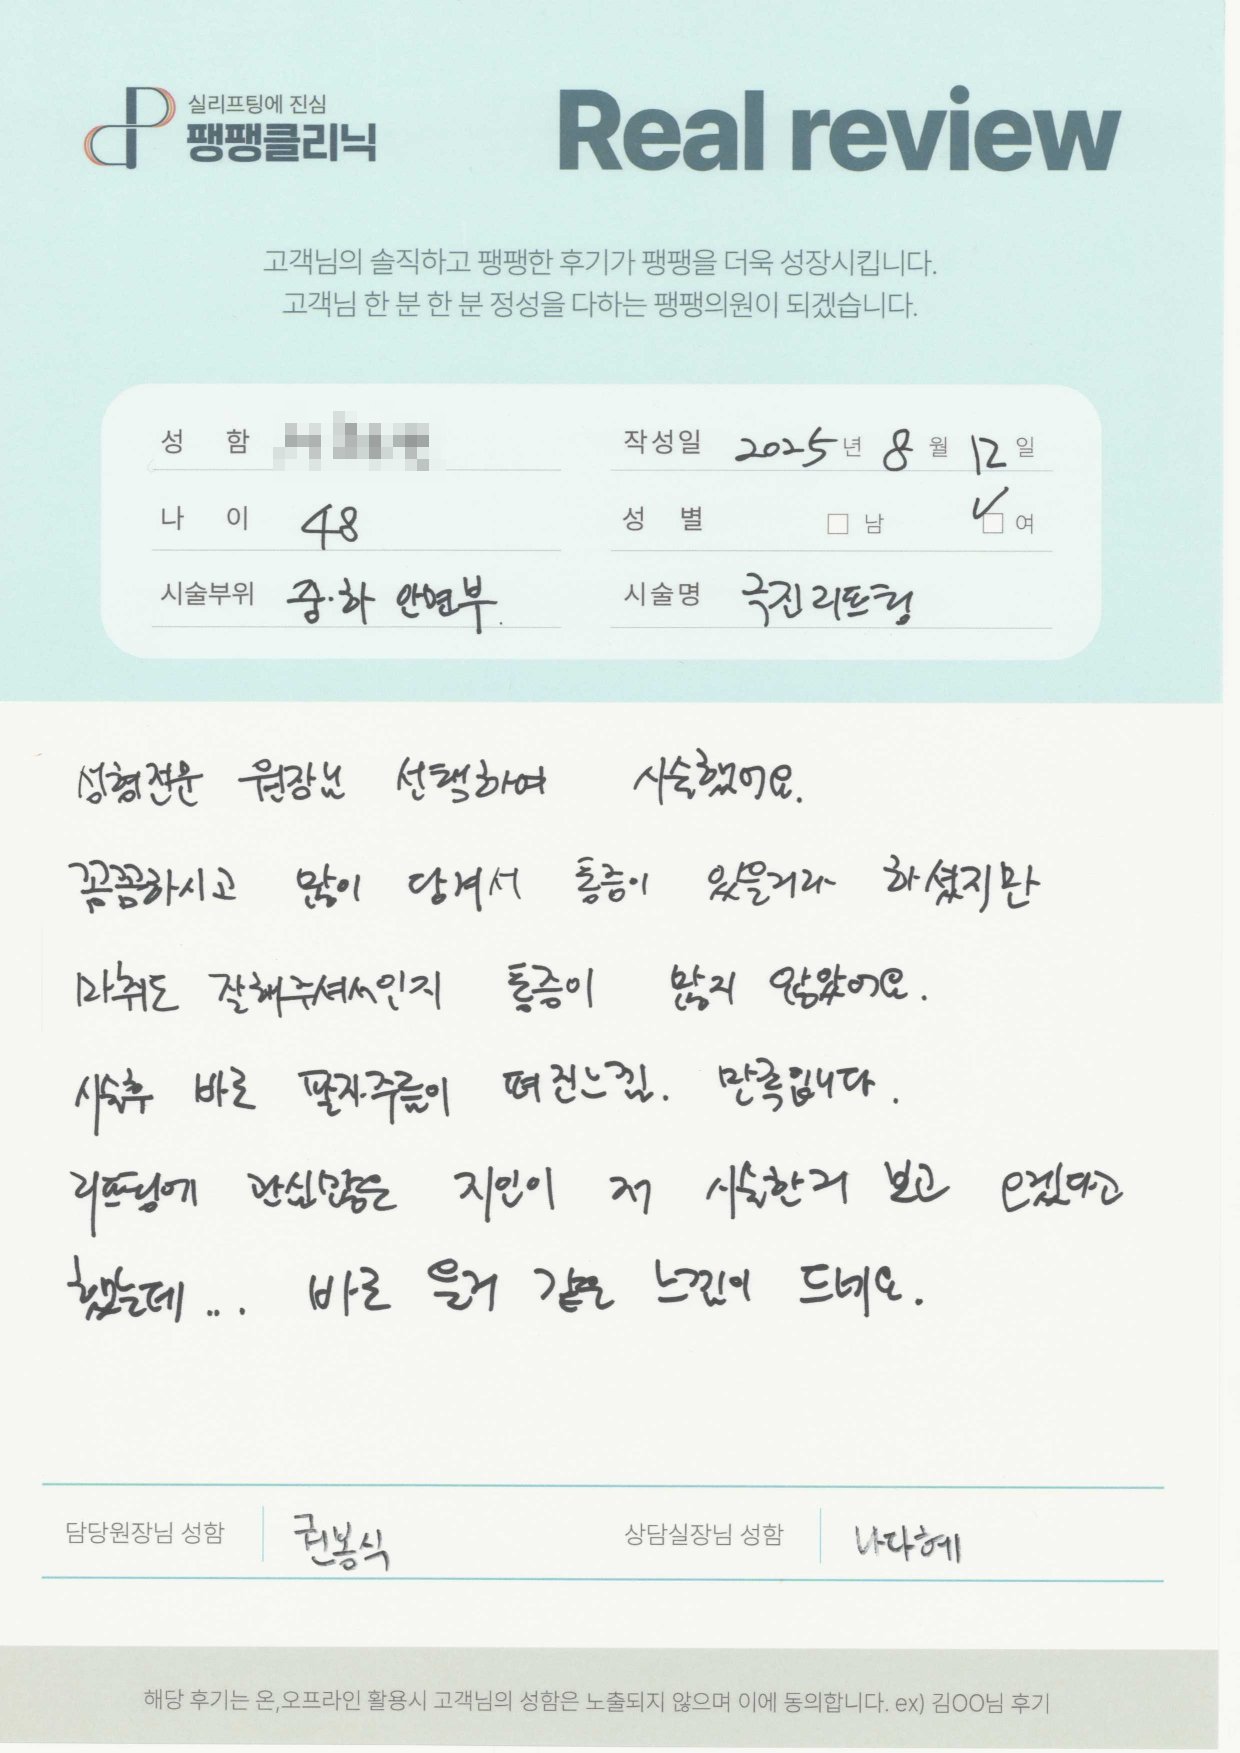 실리프팅에 진심
팽팽클리닉
Real review
고객님의 솔직하고 팽팽한 후기가 팽팽을 더욱 성장시킵니다.
고객님 한 분 한 분 정성을 다하는 팽팽의원이 되겠습니다.
성 함 작성일 2025년 8월 12일
나 이 48 성 별 남 여
시술부위 중·하 안면부. 시술명 극진리프팅
성형전문 원장님 선택하여 시술했어요.
꼼꼼하시고 많이 당겨서 통증이 있을거라 하셨지만
마취도 잘해주셔서인지 통증이 많지 않았어요.
시술후 바로 팔자주름이 펴진느낌. 만족입니다.
리프팅에 관심많은 지인이 저 시술한거 보고 오겠다고
했는데... 바로 올거 같은 느낌이 드네요.
담당원장님 성함 권봉식 상담실장님 성함 나다혜
해당 후기는 온,오프라인 활용시 고객님의 성함은 노출되지 않으며 이에 동의합니다. ex) 김OO님 후기